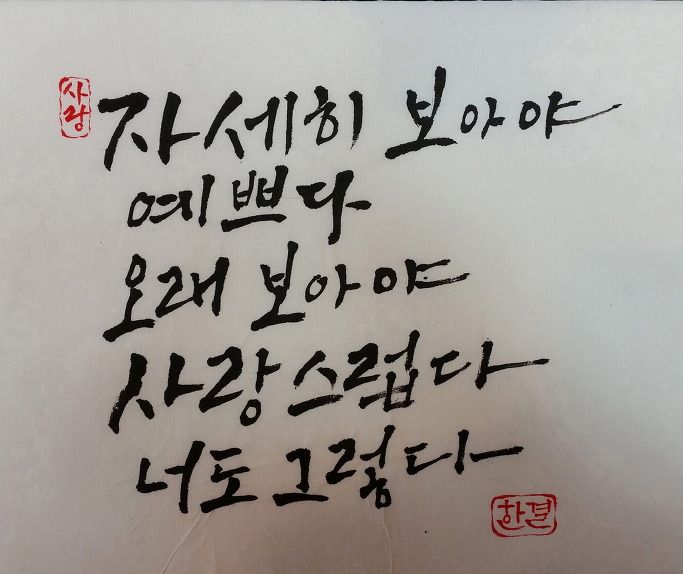 사랑
자세히 보아야
예쁘다
오래 보아야
사랑스럽다
너도 그렇다
한결